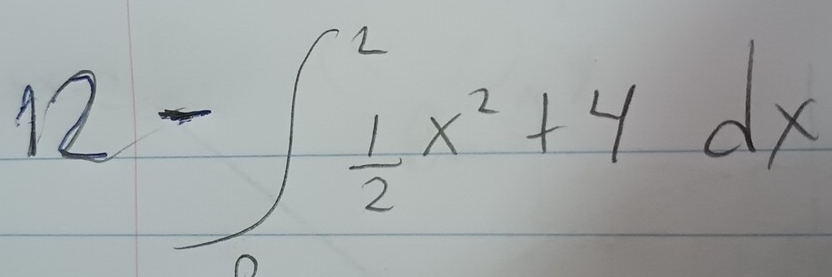 12 - ∫₀² 1/2 x² + 4 dx